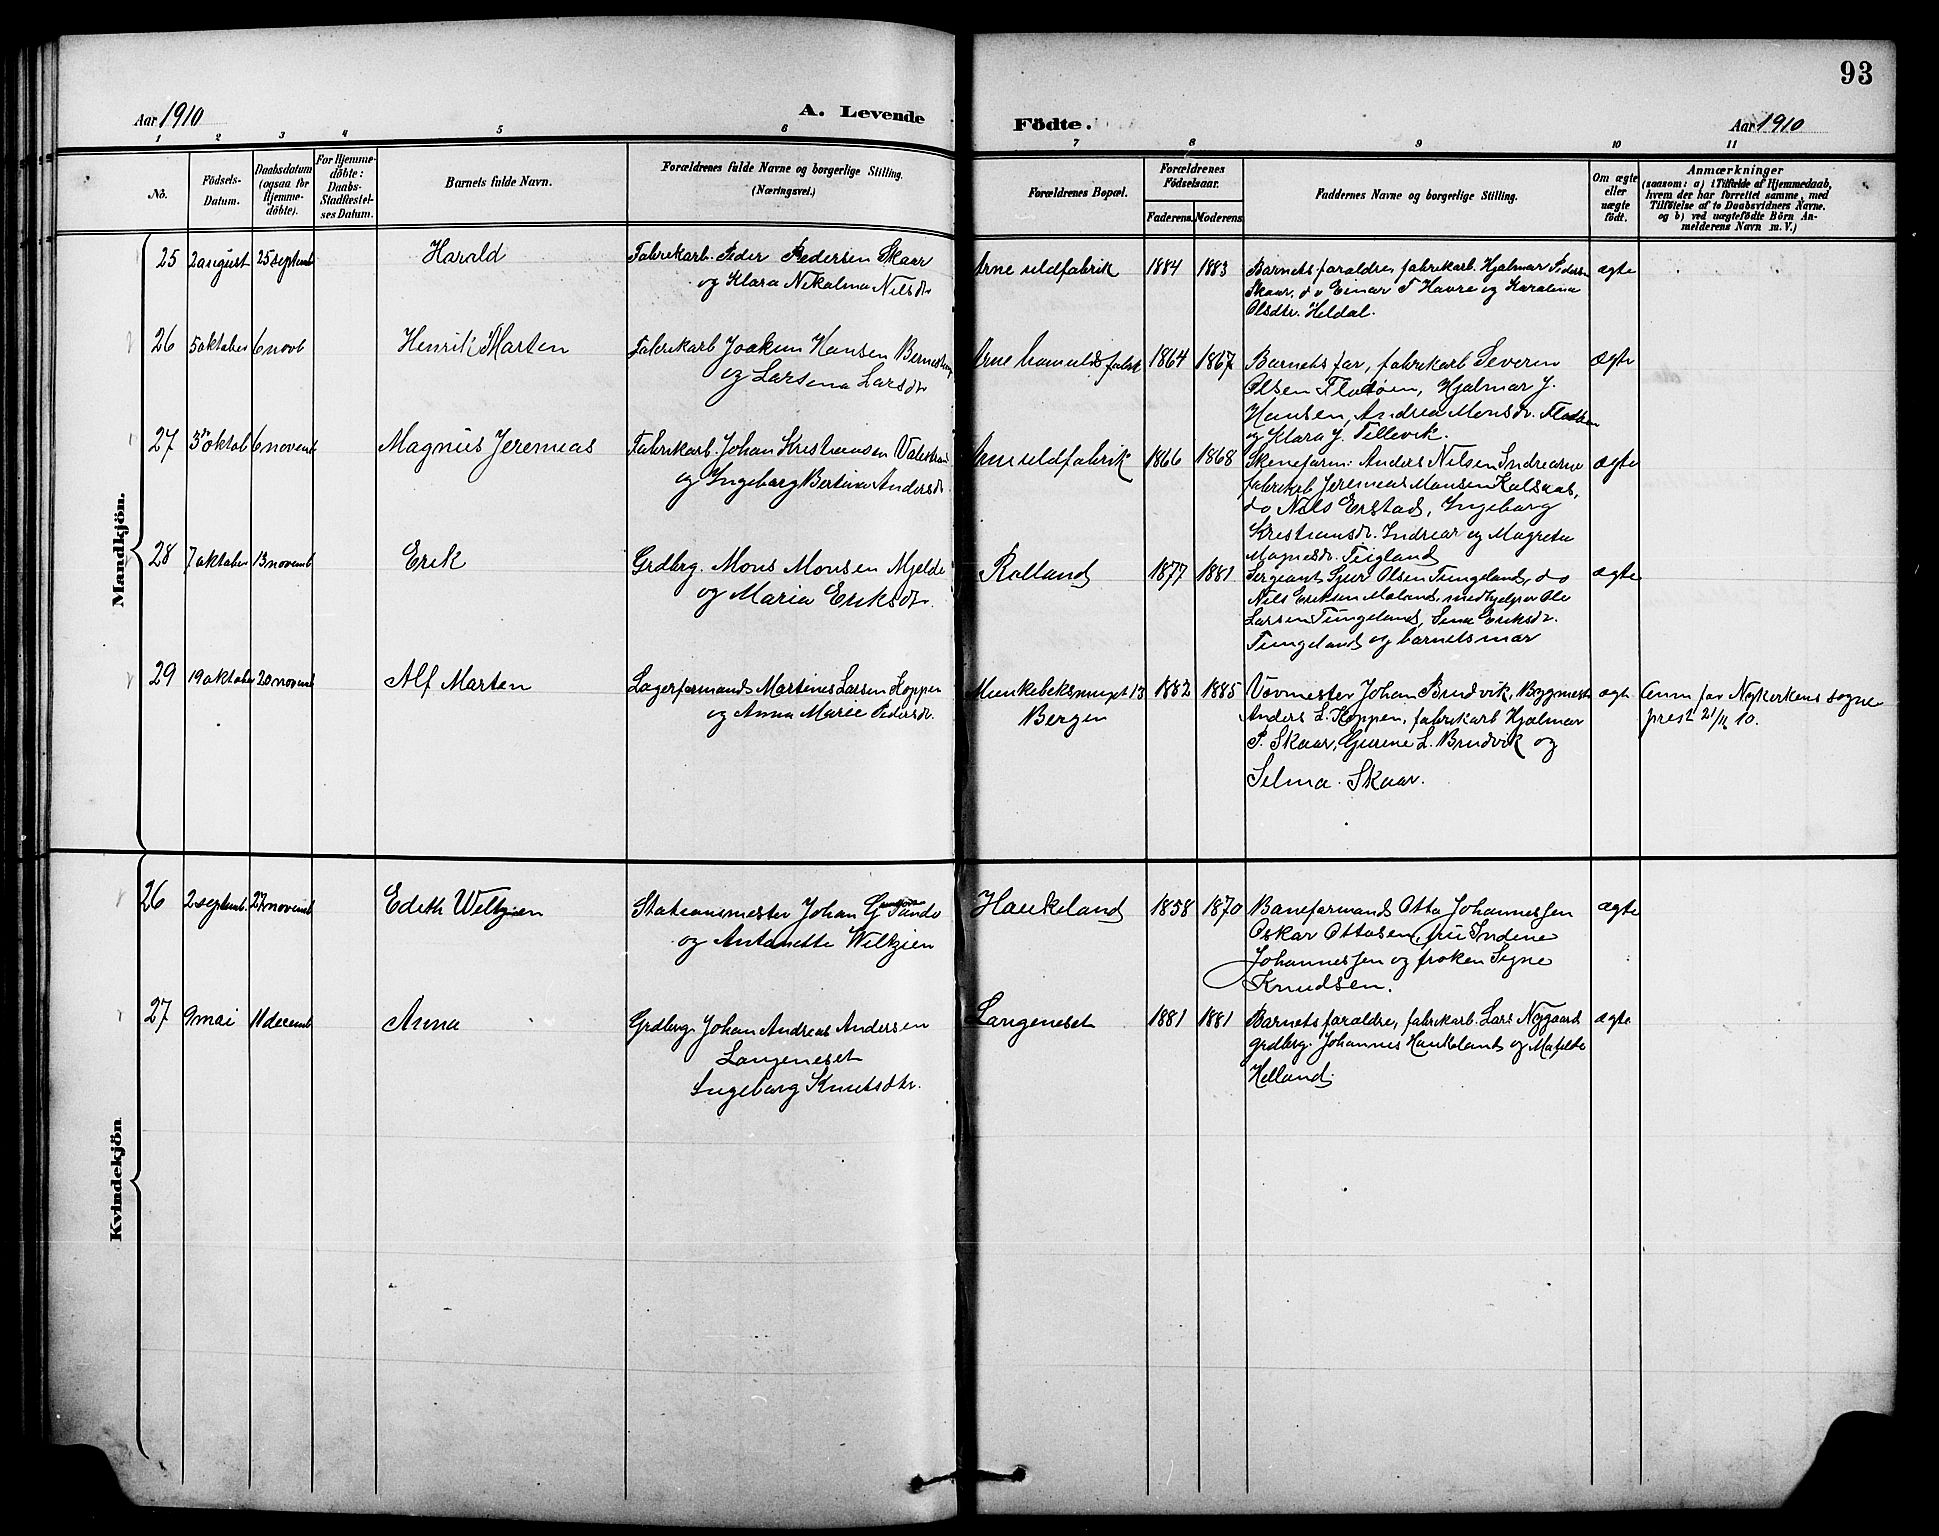 93
Aar 1910
A. Levende
Födte.
Aar 1910
1 2 3 4 5 6 7 8 9 10 11
No.
Födsels-
Datum.
Daabsdatum
(ogsaa for
Hjemme-
döbte).
For Hjemme-
döbte:
Daabs-
Stadfæstel-
ses Datum.
Barnets fulde Navn.
Forældrenes fulde Navne og borgerlige Stilling.
(Næringsvei.)
Forældrenes Bopæl.
Forældrenes
Födselsaar.
Faderens. Moderens.
Faddernes Navne og borgerlige Stilling.
Om ægte
eller
uægte
födt.
Anmærkninger
(saasom: a) i Tilfælde af Hjemmedaab,
hvem der har forrettet samme, med
Tilföielse af to Daabsvidners Navne.
og b) ved uægtefödte Börn An-
melderens Navn m. V.)
Mandkjön.
25 2 august 25 septemb Harald
Fabrikarb. Peder Pedersen Skaar
og Klara Nikolina Nilsdr
Arne uldfabrik 1884 1883
Barnets forældre, fabrikarb. Hjalmar Pedersen
Skaar, do Einar T Havre og Karolina
Olsdtr. Heldal.
ægte
26 5 oktober 6 novb Henrik Marten
Fabrikarb Joakim Hansen
og Larsena Larsdr
Arne 1864 1867
Barnets far, fabrikarb Severin
Olsen Flatøen, Hjalmar J.
Hansen, Andrea Monsdr. Flatøen
og Klara J. Tellevik.
ægte
27 oktob 6 novemb Magnus Jeremias
Fabrikarb. Johan Kristiansen
og Ingeborg Bertina Andersdr
Arne uldfabrik 1866 1868
Anders Nilsen Indrearne
fabrikarb Jeremias Monsen Kalsaas,
do Nils Erstad, Ingeborg
Kristiansdr. Indrear og Magreta
Magnesdr. Teigland
ægte
28 7 oktober 13 novemb Erik
Grdbrg. Mons Monsen Mjelde
og Maria Eriksdr.
Rolland 1877 1881
Sergeant Sjur Olsen Tungeland, do
Nils Eriksen medhjelper Ole
Larsen Tungeland, Sena Eriksdr.
Tungeland og barnets mor
ægte
29 19 oktober 20 novemb Alf Marten
Lagerformand Martines Larsen Koppen
og Anna Marie Pedersdr.
Munkebeksmuget 13
Bergen
1882 1885
Vævmester Johan Brudvik, Bygmest
Anders L. Koppen, fabrikarb Hjalmar
P. Skaar, Gurine L. Brudvik og
Selma Skaar.
ægt
Anm for Nykirkens sogne
prest 21/11 10.
Kvindekjön
26 2 septemb. 27 novemb Edith Weltzien
Stationsmester Johan G Sundo
og Antonette Weltzien
Haukeland 1858 1870
Baneformand Otto Johannessen
Oskar Ottosen, fru Indine
Johannessen og frøken Signe
Knudsen.
ægte
27 9 mai 11 decemb Anna
Grdbrg. Johan Andreas Andersen
Langeneset
Ingeborg Knutsdtr.
Langeneset 1881 1881
Barnets forældre, fabrikarb. Lars Nygaard
grdbrg. Johannes Haukeland og Matilde
Helland.
ægte